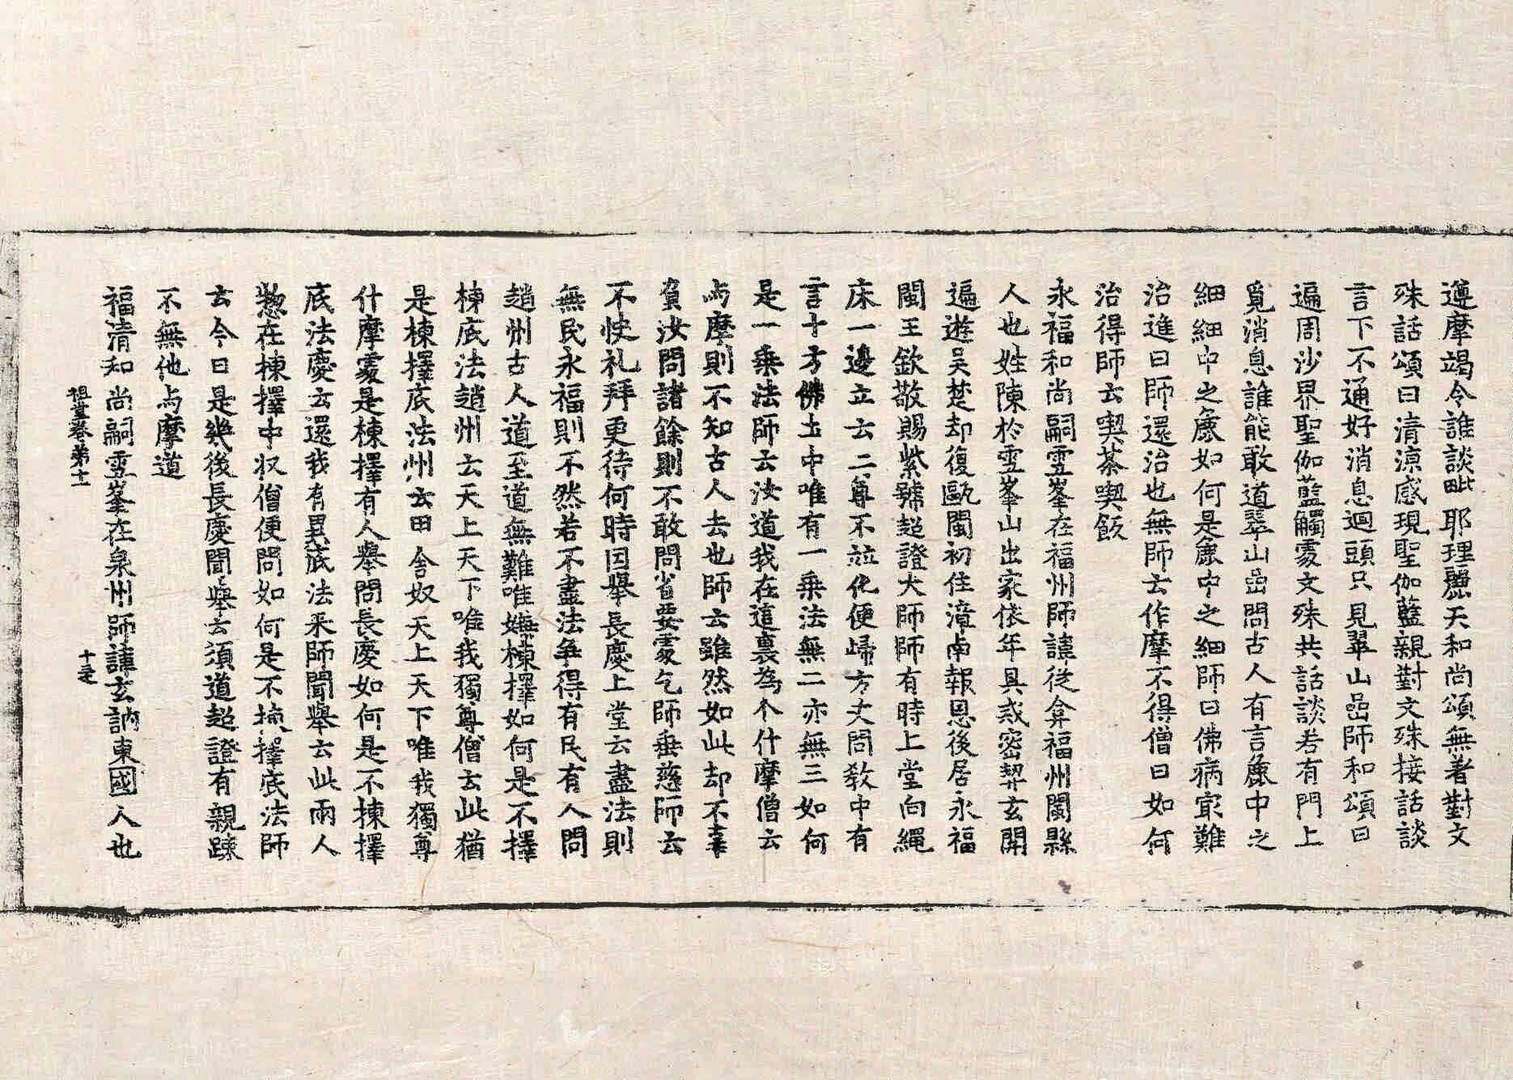 遵摩竭令誰談毗耶理麗天和尚頌無著對文
殊話頌曰清涼感現聖伽藍親對文殊接話談
言下不通好消息迴頭只見翠山嵒師和頌曰
遍周沙界聖伽藍觸處文殊共話談若有門上
覓消息誰能敢道翠山嵒問古人有言麁中之
細細中之麁如何是麁中之細師曰佛病寂難
治進曰師還治也無師云作摩不得僧曰如何
治得師云喫茶喫飯
永福和尚嗣雪峯在福州師諱從弇福州閩縣
人也姓陳於雪峯山出家依年具戒密契玄開
遍遊吳楚却復甌閩初住漳南報恩後居永福
閩王欽敬賜紫號超證大師師有時上堂向繩
床一邊立云二尊不竝化便歸方丈問教中有
言十方佛土中唯有一乘法無二亦無三如何
是一乘法師云汝道我在這裏為个什摩僧云
与摩則不知古人去也師云雖然如此却不辜
負汝問諸餘則不敢問省要處乞師垂慈師云
不快礼拜更待何時因舉長慶上堂云盡法則
無民永福則不然若不盡法爭得有民有人問
趙州古人道至道無難唯嫌揀擇如何是不擇
揀底法趙州云天上天下唯我獨尊僧云此猶
是揀擇底法州云田舍奴天上天下唯我獨尊
什摩處是揀擇有人舉問長慶如何是不揀擇
底法慶云還我有異底法來師聞舉云此兩人
惣在揀擇中収僧便問如何是不揀擇底法師
云今日是幾後長慶聞舉云須道超證有親踈
不無他与摩道
福清和尚嗣雪峯在泉州師諱玄訥東國人也
祖堂卷第十一 十之